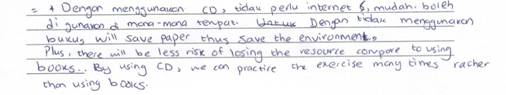 = + Dengan menggunakan CD, tidak perlu internet &, mudah. boleh
di gunakan d mana-mana tempat. Untuk Dengan tidak menggunakan
bukus will save paper thus save the environment.
Plus, there will be less risk of losing the resource compare to using
books.. By using CD, we can practice the exercise many times rather
than using books.